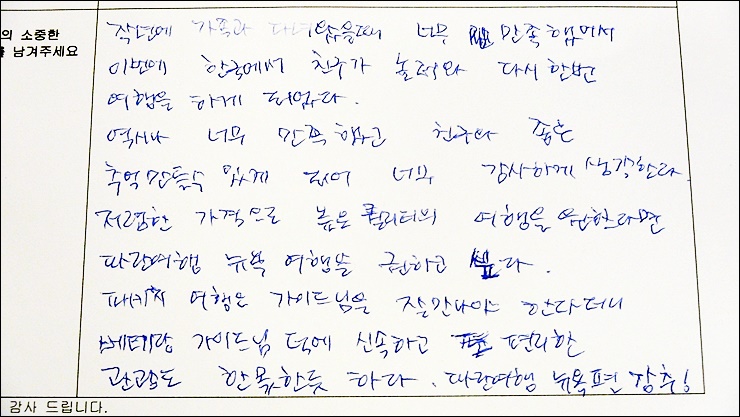 의 소중한
를 남겨주세요
작년에 가족과 다녀왔을때 너무 만족해서
이번에 한국에서 친구가 놀러와 다시 한번
여행을 하게 되었다.
역시나 너무 만족했고 친구와 좋은
추억 만들수 있게 되어 너무 감사하게 생각한다.
저렴한 가격으로 높은 퀄리티의 여행을 원한다면
파란여행 뉴욕 여행을 권하고 싶다.
패키지 여행은 가이드님을 잘만나야 한다더니
베테랑 가이드님 덕에 신속하고 편리한
관광도 한몫한듯 하다. 파란여행 뉴욕편 강추!
감사 드립니다.